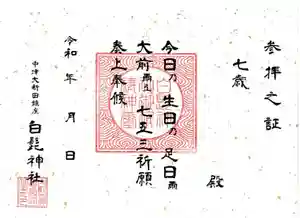 参拝之証
七歳
殿
今日乃生日乃足日爾
大前爾且七五三祈願
奏上奉候
令和 年 月 日
中津大新田鎮座
白髭神社